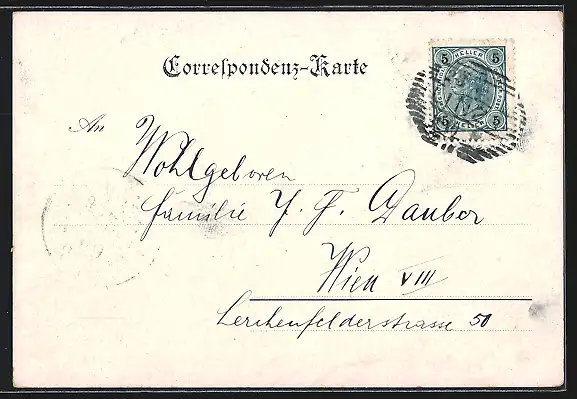 Correspondenz-Karte
5 HELLER 5
5 HELLER 5
LINZ
An
Wohlgeboren
Familie J. F. Dauber
Wien VIII
Lerchenfelderstrasse 50